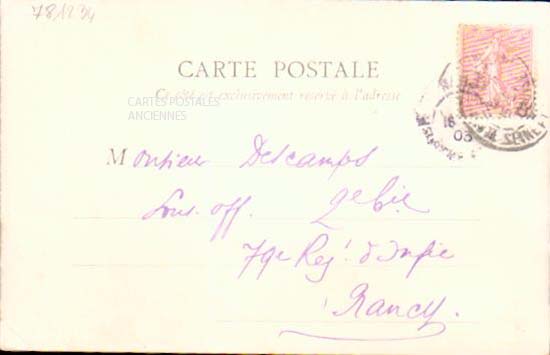 781234
CARTE POSTALE
Ce côté est exclusivement réservé à l'adresse
CARTES POSTALES
ANCIENNES
16
03
SEINE
Monsieur Descamps
Sous. off. 2e Cie
79e Regt. d'Infie
Nancy.